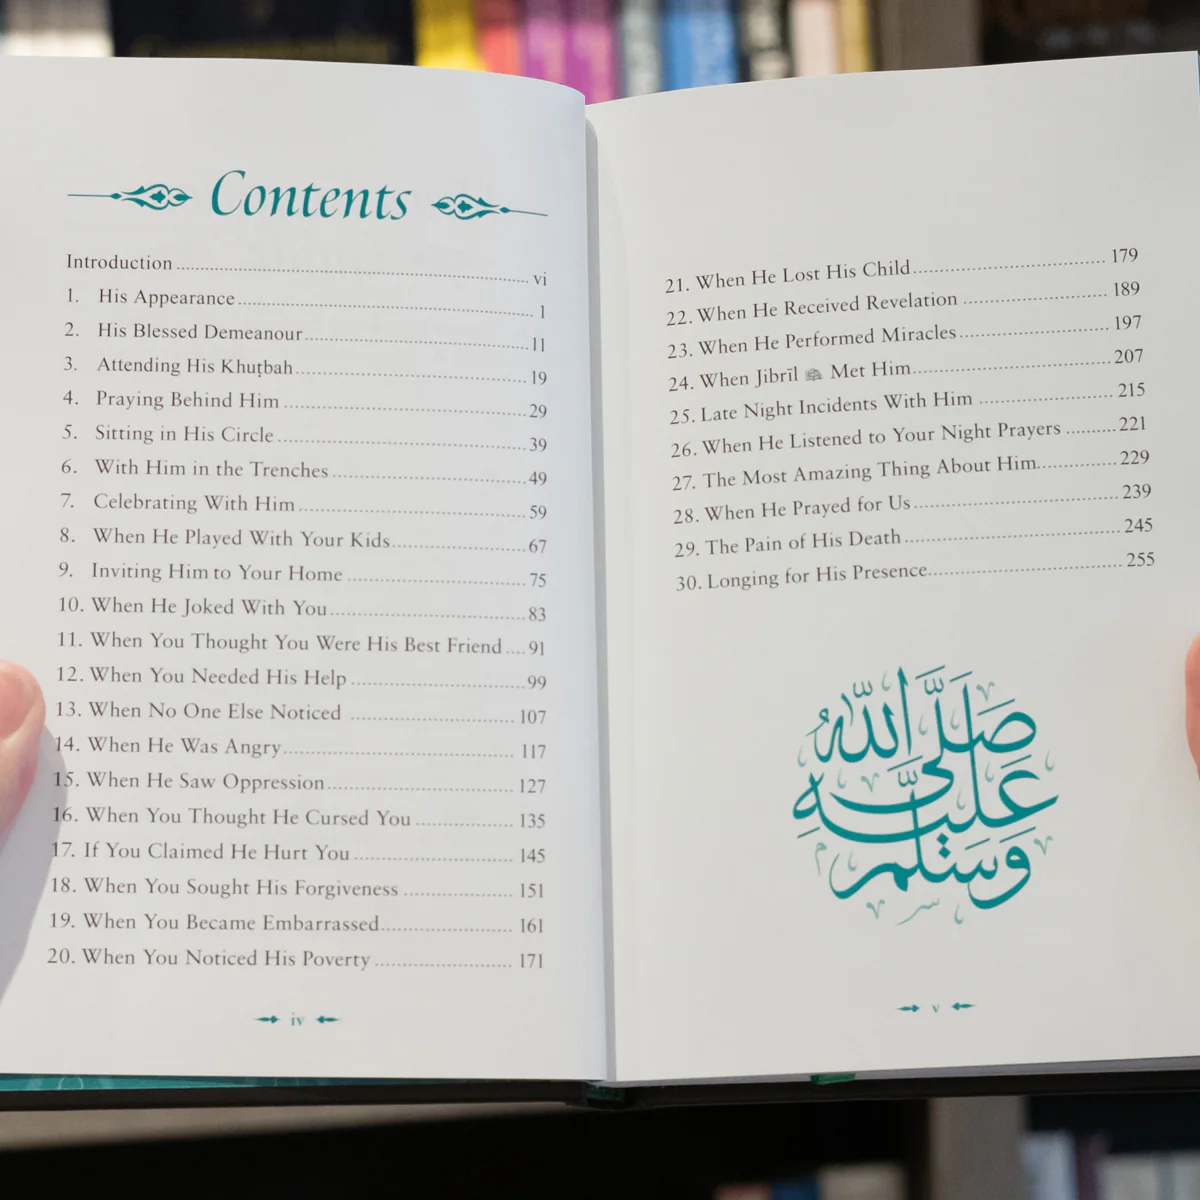 Contents
Introduction ........ vi
1. His Appearance ........ 1
2. His Blessed Demeanour ........ 11
3. Attending His Khuṭbah ........ 19
4. Praying Behind Him ........ 29
5. Sitting in His Circle ........ 39
6. With Him in the Trenches ........ 49
7. Celebrating With Him ........ 59
8. When He Played With Your Kids ........ 67
9. Inviting Him to Your Home ........ 75
10. When He Joked With You ........ 83
11. When You Thought You Were His Best Friend .... 91
12. When You Needed His Help ........ 99
13. When No One Else Noticed ........ 107
14. When He Was Angry ........ 117
15. When He Saw Oppression ........ 127
16. When You Thought He Cursed You ........ 135
17. If You Claimed He Hurt You ........ 145
18. When You Sought His Forgiveness ........ 151
19. When You Became Embarrassed ........ 161
20. When You Noticed His Poverty ........ 171
iv
21. When He Lost His Child ........ 179
22. When He Received Revelation ........ 189
23. When He Performed Miracles ........ 197
24. When Jibrīl Met Him ........ 207
25. Late Night Incidents With Him ........ 215
26. When He Listened to Your Night Prayers ........ 221
27. The Most Amazing Thing About Him ........ 229
28. When He Prayed for Us ........ 239
29. The Pain of His Death ........ 245
30. Longing for His Presence ........ 255
صَلَّى اللّٰه
عَلَيْهِ
وَسَلَّم
v